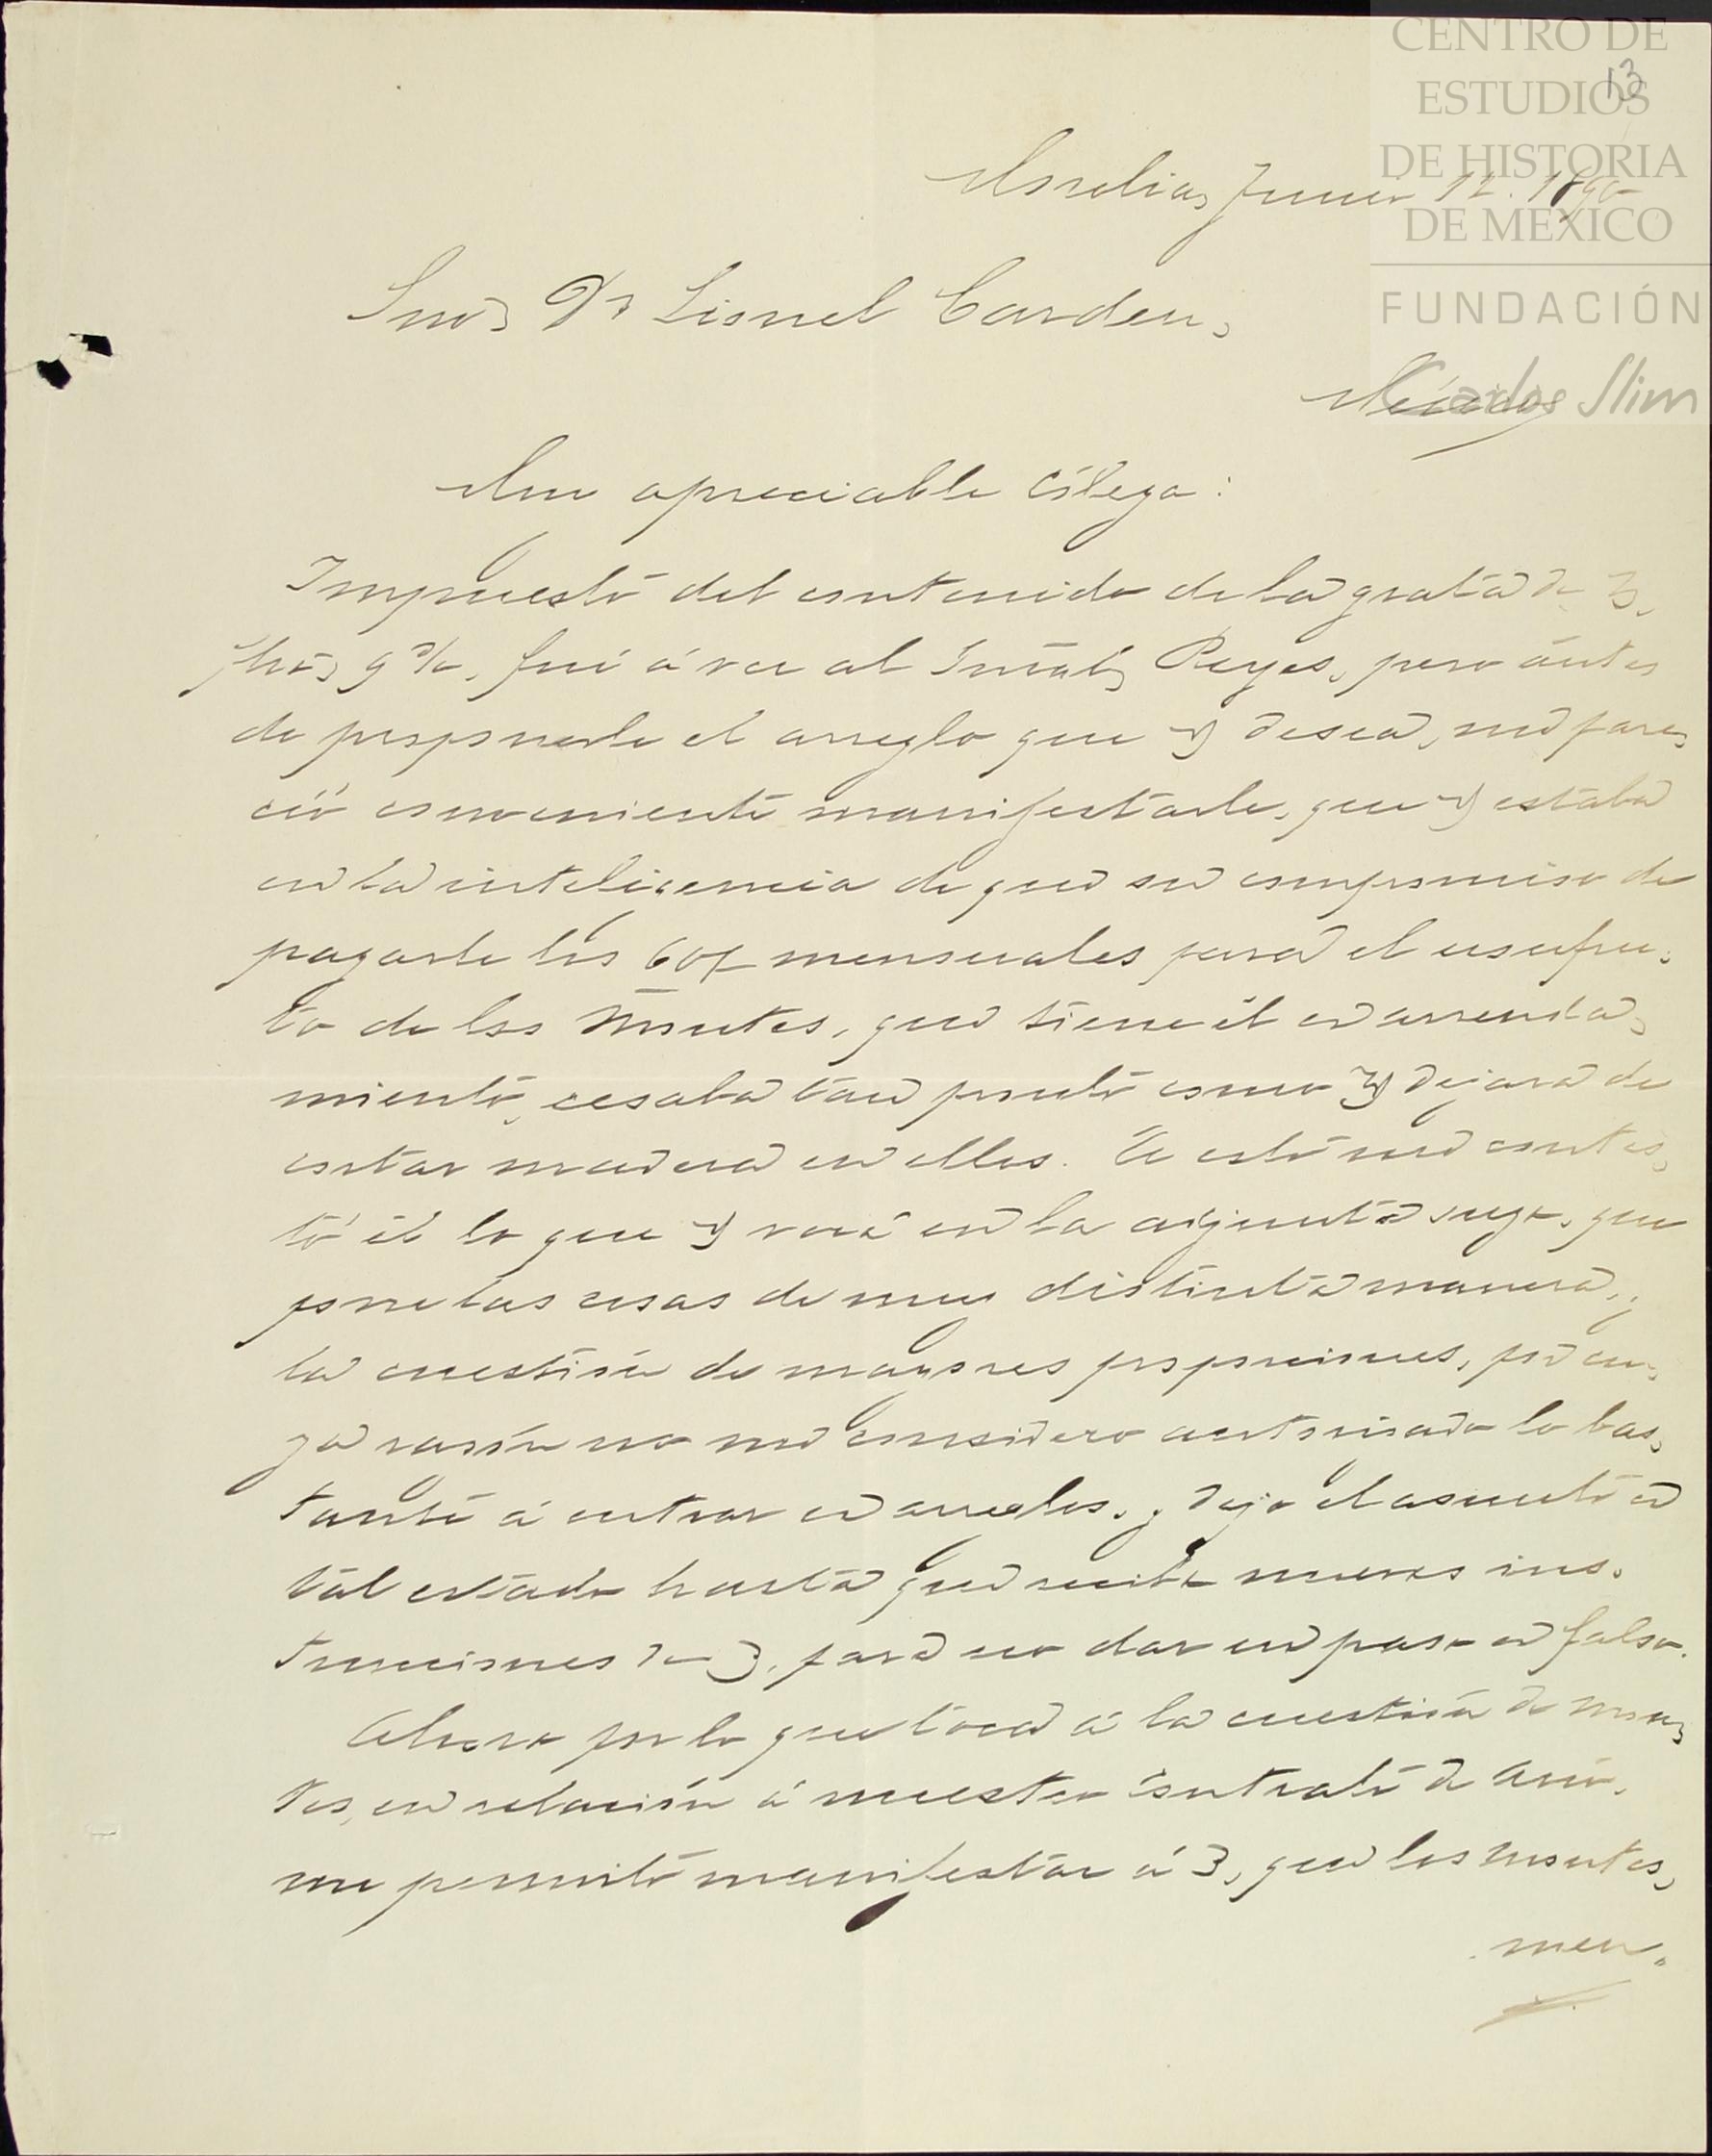 CENTRO DE
ESTUDIOS
DE HISTORIA
DE MÉXICO
FUNDACIÓN
Carlos Slim
13
Morelia, Junio 12. 1890
Snõr Dn Lionel Carden,
México
Muy apreciable cólega:
Impuesto del contenido de la grata de V.
fhã, 9 %, fuí á ver al Reyes, pero ántes
de proponerle el arreglo que V desea, me pare-
ció conveniente manifestarle, que V estaba
en la inteligencia de que su compromiso de
pagarle los 60$ mensuales para el usufru-
to de los Montes, que tiene él en arrenda-
miento, cesaba tan pronto como V dejara de
cortar madera en ellos. A esto me contes-
tó él lo que V verá en la adjunta suya, que
pone las cosas de muy distinta manera, y
la cuestión de mayores proporciones, por cu-
ya razón no me considero autorisado lo bas-
tante á entrar en arreglos, y dejo el asunto en
tal estado hasta que reciba nuevas ins-
trucciones de V, para no dar un paso en falso.
Ahora por lo que toca á la cuestión de mon-
tes, en relación á nuestro contrato de
me permito manifestar á V, que los montes,
men-